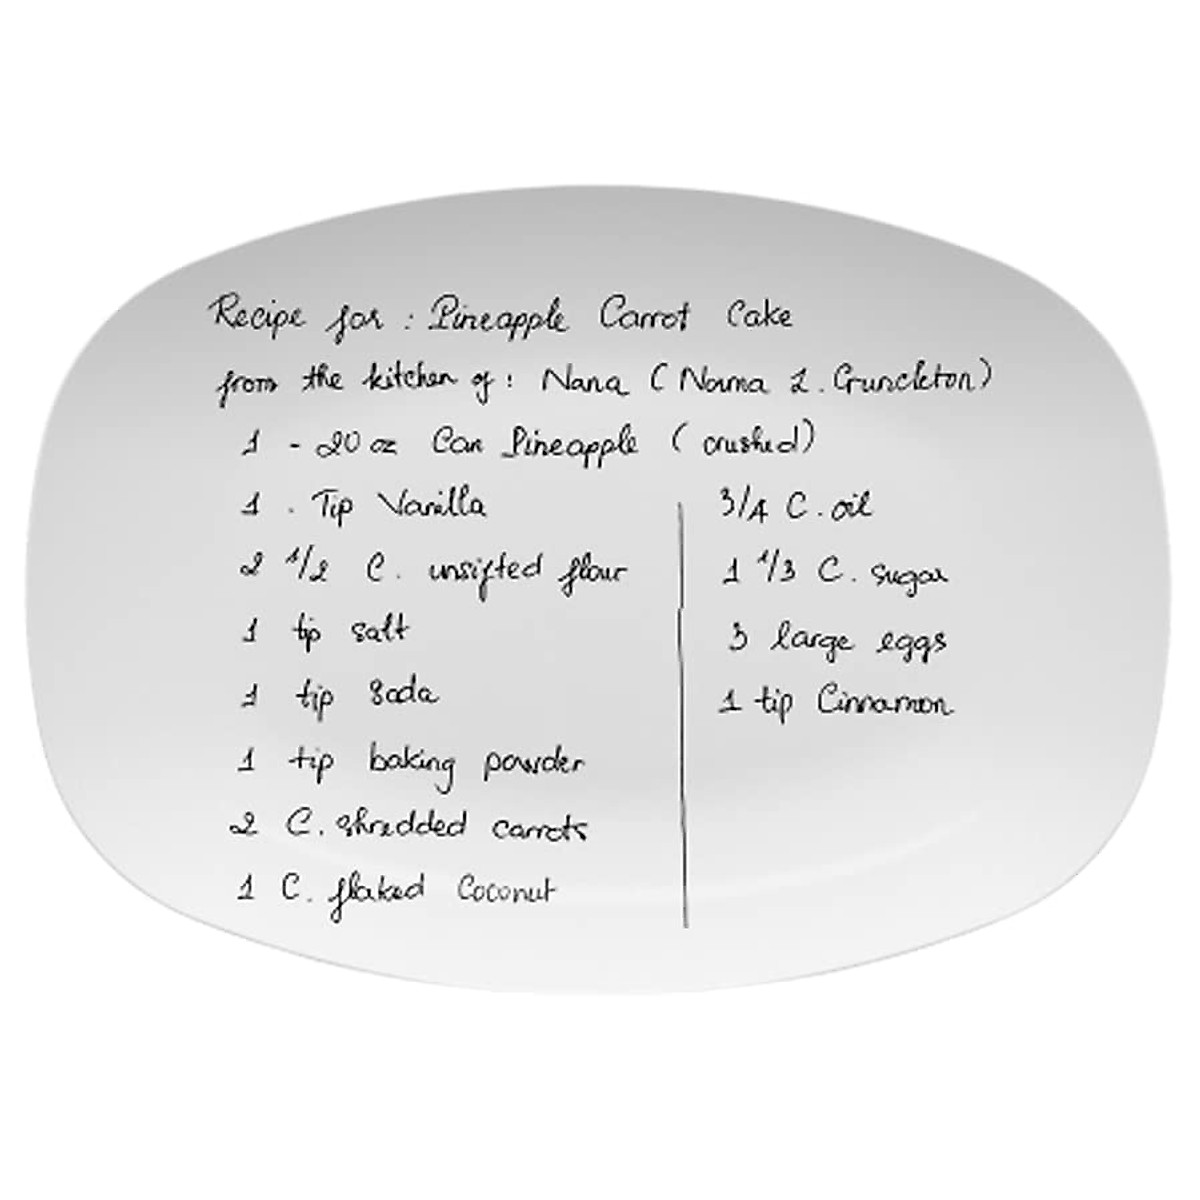 Recipe for : Pineapple Carrot Cake
from the kitchen of : Nana ( Norma L. Crunckton)
1 - 20 oz Can Pineapple ( crushed)
1 . Tip Vanilla
2 1/2 C. unsifted flour
1 tip salt
1 tip Soda
1 tip baking powder
2 C. shredded carrots
1 C. flaked Coconut
3/4 C. oil
1 1/3 C. sugar
3 large eggs
1 tip Cinnamon